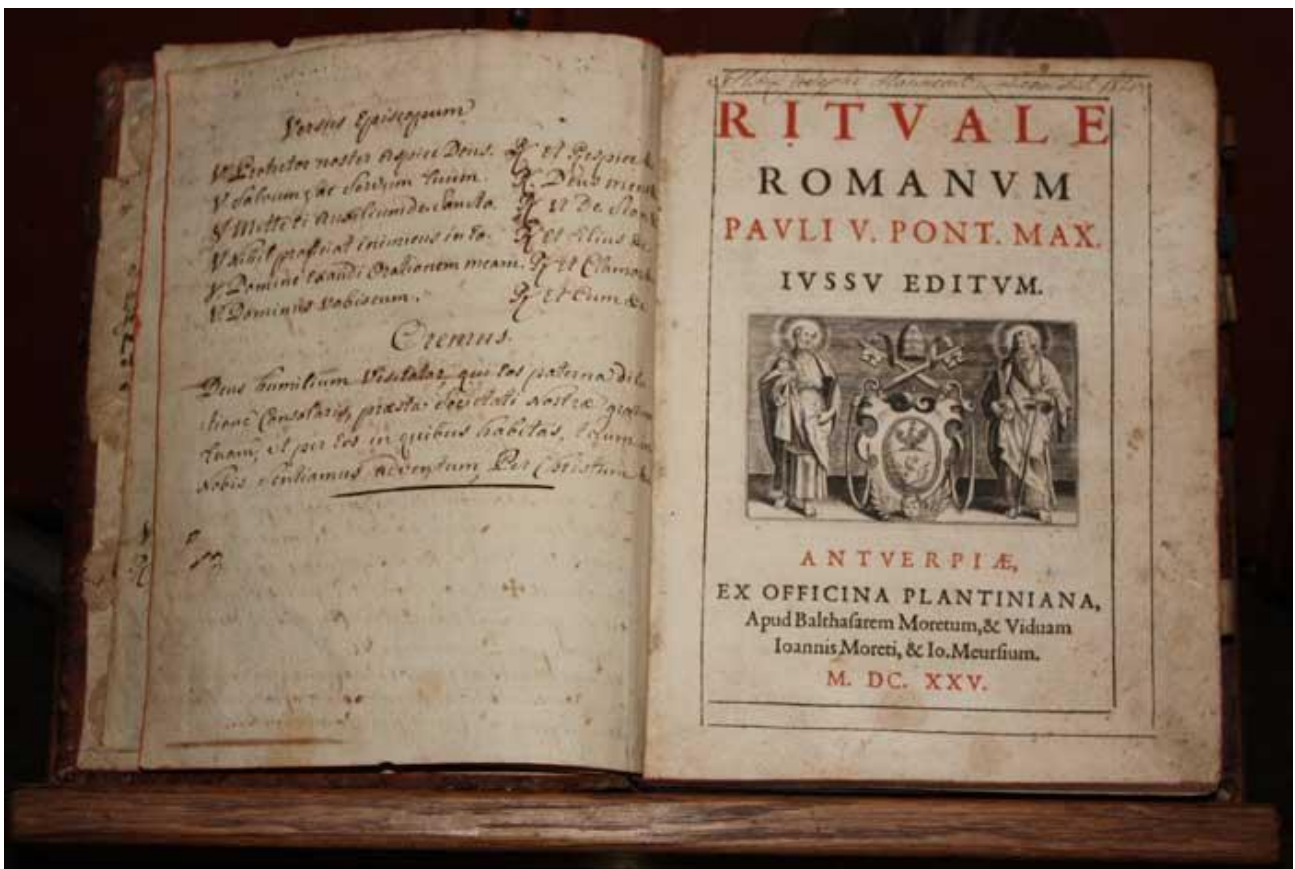 Versus Episcopum
℣ Protector noster Aspice Deus. ℟ et Respice &
℣ Salvum fac Servum tuum. ℟. Deus meus
℣ Mitte ei Auxilium de Sancto. ℟ Et De Sion
℣ Nihil proficiat inimicus in eo. ℟ et filius &
℣ Domine exaudi Orationem meam. ℟ Et Clamor
℣ Dominus Vobiscum. ℟ Et Cum &
Oremus.
Deus humilium Visitator, qui eos paterna dile
ctione Consolaris, præsta Societati nostræ gratiam
tuam, ut per eos in quibus habitas, tuum in
nobis sentiamus adventum, Per Christum &
RITVALE
ROMANVM
PAVLI V. PONT. MAX.
IVSSV EDITVM.
ANTVERPIÆ,
EX OFFICINA PLANTINIANA,
Apud Balthaſarem Moretum, & Viduam
Ioannis Moreti, & Io. Meurſium.
M. DC. XXV.